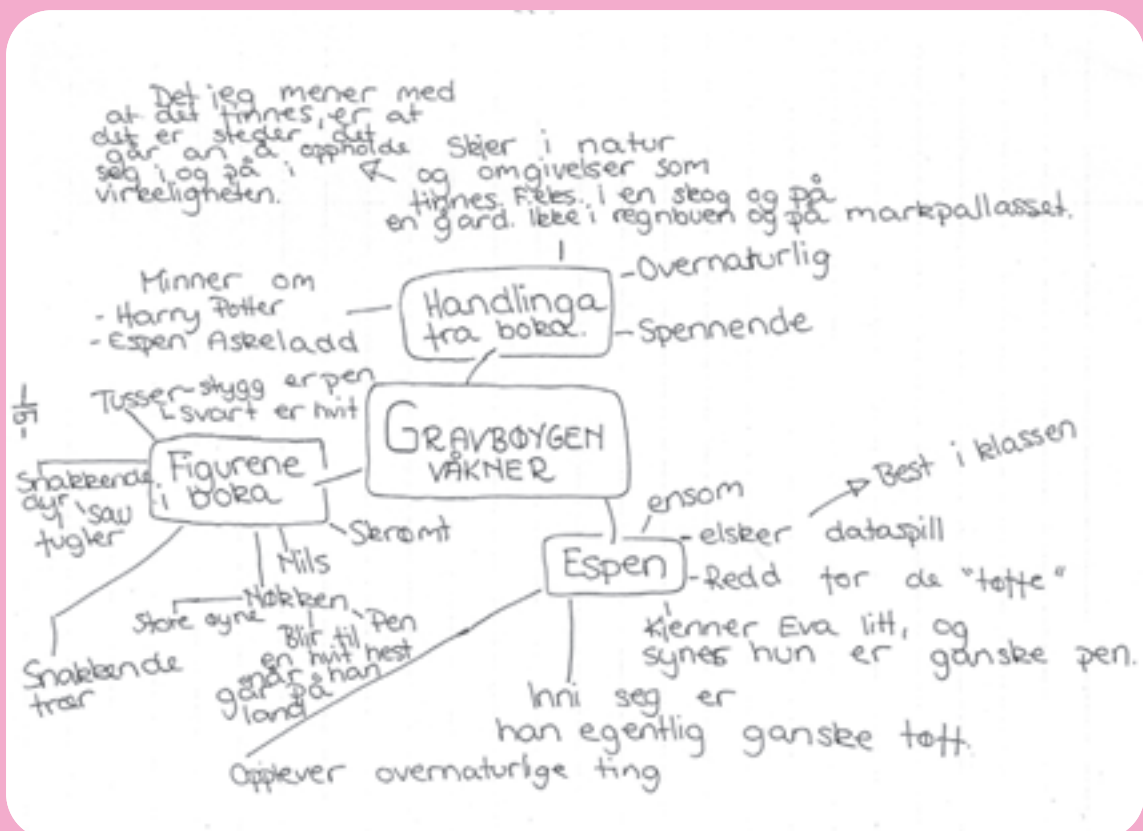 Det jeg mener med
at det finnes, er at
det er steder det
går an å oppholde
seg i og på i
virkeligheten.
Skjer i natur
og omgivelser som
finnes. F.eks. i en skog og på
en gard. Ikke i regnbuen og på markpallasset.
Minner om
- Harry Potter
- Espen Askeladd
Handlinga
fra boka.
-Overnaturlig
-Spennende
GRAVBØYGEN
VÅKNER
Tusser-stygg er pen
svart er hvit
Figurene
i boka
Snakkende
dyr
sau
fugler
Skrømt
Nils
Nøkken
Store øyne
Pen
Blir til
en hvit hest
når han
går på
land
Snakkende
trær
Espen
ensom
-elsker dataspill
Best i klassen
-Redd for de "tøffe"
Kjenner Eva litt, og
synes hun er ganske pen.
Inni seg er
han egentlig ganske tøff.
Opplever overnaturlige ting